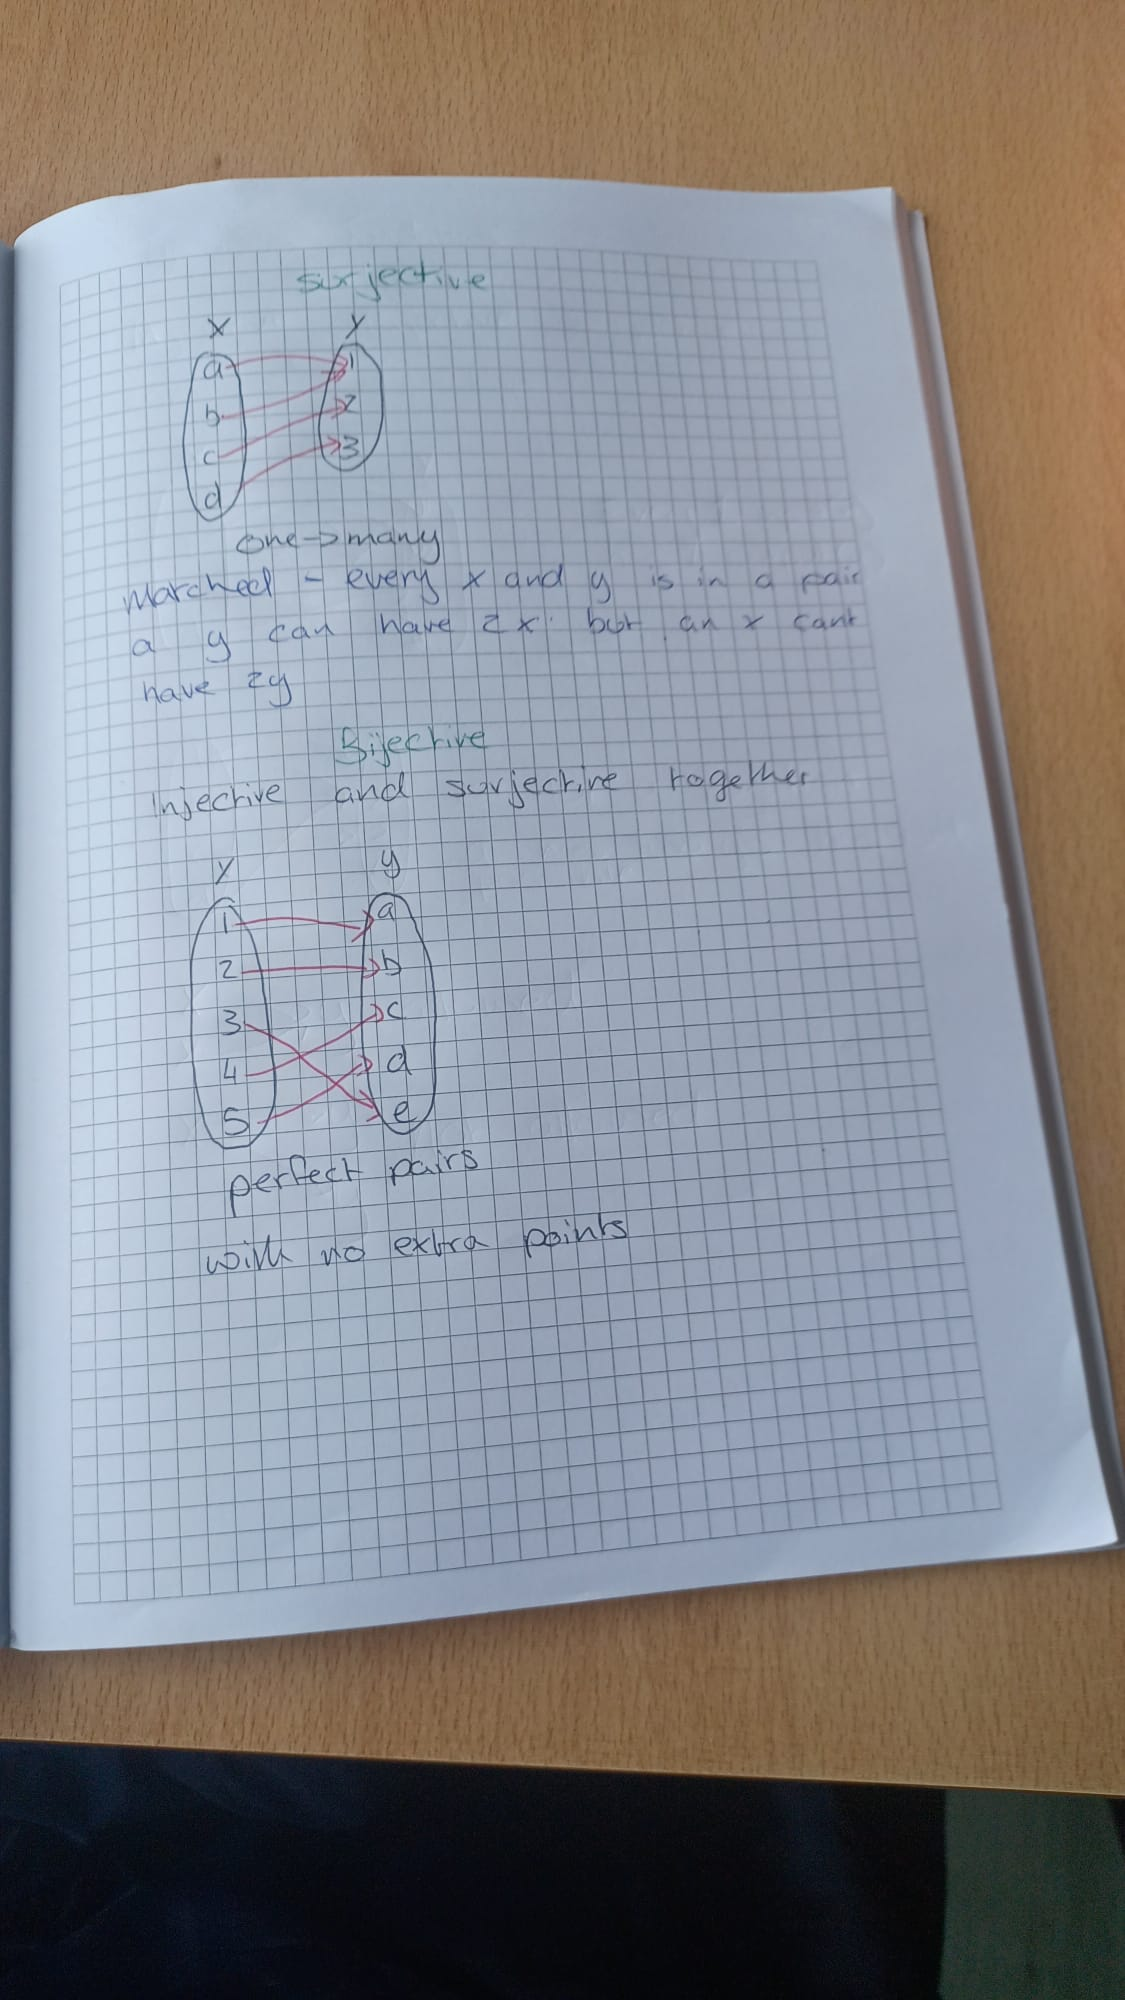 surjective
X Y
a 1
b 2
c 3
d
one->many
Matched - every x and y is in a pair
a y can have 2x. but an x cant
have 2y
Bijective
Injective and surjective together
X y
1 a
2 b
3 c
4 d
5 e
perfect pairs
with no extra points